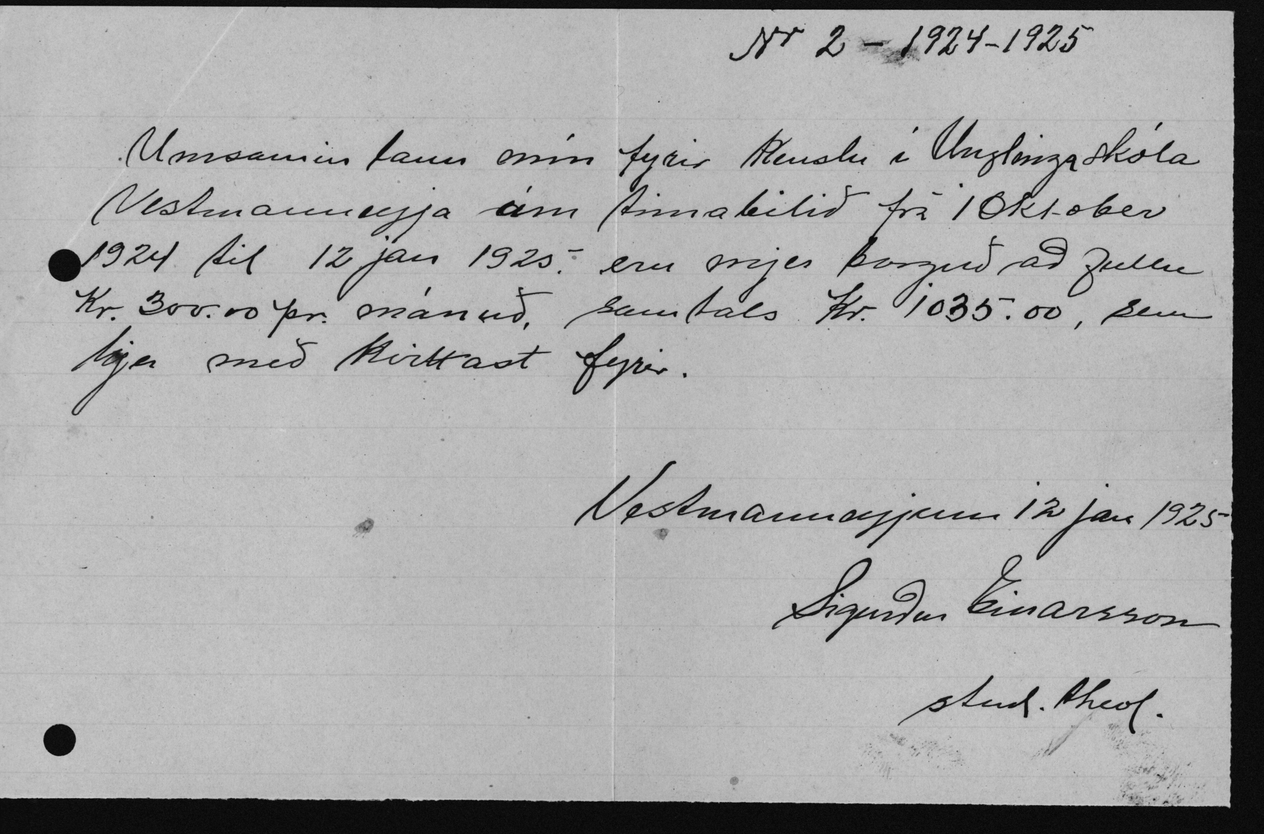 Nr 2 - 1924-1925
Umsamin laun mín fyrir kenslu í Unglingaskóla
Vestmannaeyja um tímabilið frá 1 Október
1924 til 12 jan 1925. eru mjer borguð að fullu
Kr. 300.00 pr. mánuð, samtals Kr. 1035.00, sem
hjer með kvittast fyrir.
Vestmannaeyjum 12 jan 1925
Sigurður Einarsson
stud. theol.